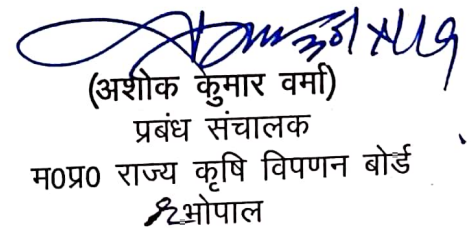 (अशोक कुमार वर्मा)
प्रबंध संचालक
म0प्र0 राज्य कृषि विपणन बोर्ड
भोपाल